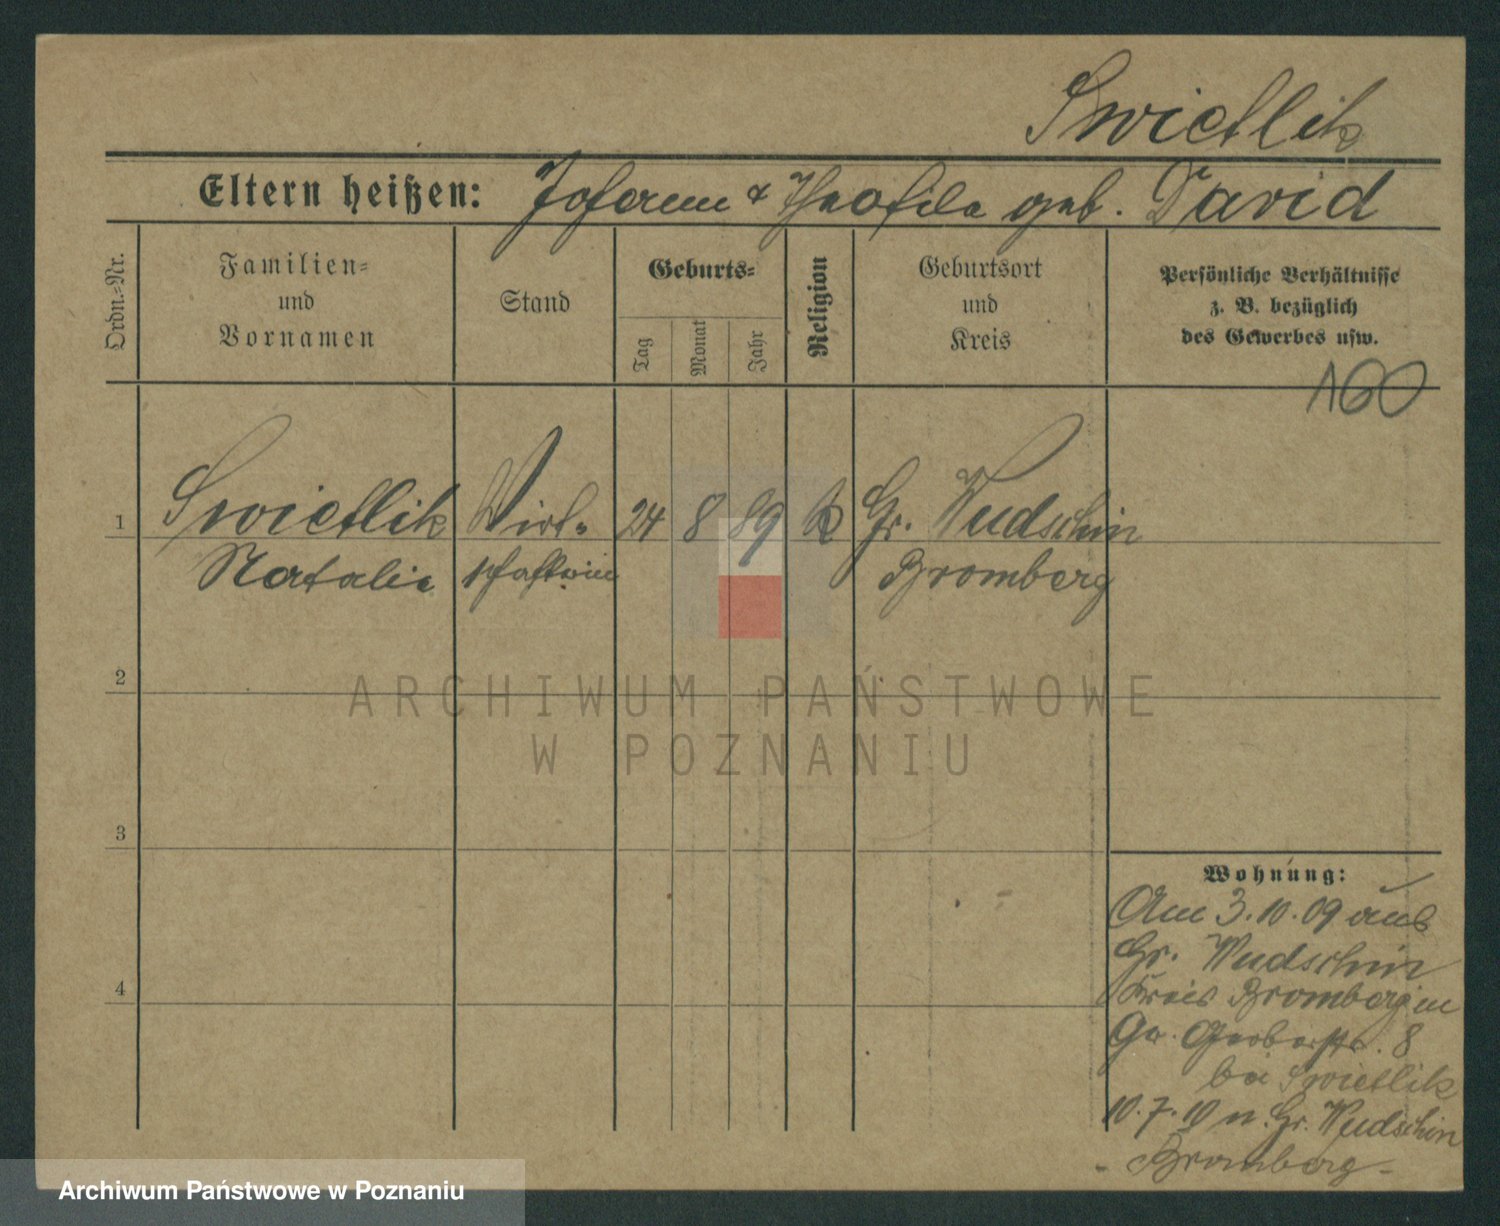 Swietlik
Eltern heißen: Johann & Theofila geb. David
Ordn.-Nr.
Familien-
und
Vornamen
Stand
Geburts-
Tag
Monat
Jahr
Religion
Geburtsort
und
Kreis
Persönliche Verhältnisse
z. B. bezüglich
des Gewerbes usw.
160
1
Swietlik Wirt- 24 8 89 k Gr. Wudschin
Natalie schafterin Bromberg
2
ARCHIWUM PAŃSTWOWE
W POZNANIU
3
4
Wohnung:
Am 3.10.09 aus
Gr. Wudschin
Kreis Bromberg in
Gr. Gerberstr. 8
bei Swietlik
10.7.10 n. Gr. Wudschin
- Bromberg -
Archiwum Państwowe w Poznaniu